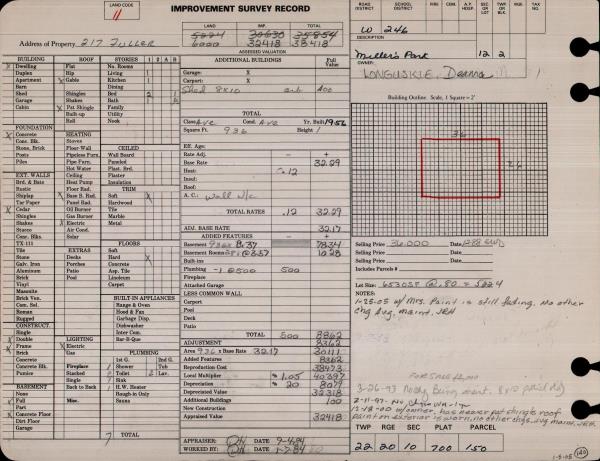 LAND CODE
11
IMPROVEMENT SURVEY RECORD
Address of Property 217 FULLER
LAND IMP. TOTAL
5224 30630 35854
6000 32418 38418
ASSESSED VALUATION
ROAD DISTRICT SCHOOL DISTRICT FIRE CEM. A.P. HOSP. SEC OR LOT TWP OR BLK. RGE TAX NO.
W 246
Miller's Park 12 2
OWNER:
LONGUSKIE, Deanna M
BUILDING ROOF STORIES 1 2 B
Dwelling Flat No. Rooms
Duplex Hip Living 1
Apartment Gable Kitchen 1
Barn Dining
Shed Shingles Bed 2
Garage Shakes Bath
Cabin Pat. Shingle Family
Built-up Utility
Roll Nook
FOUNDATION
Concrete HEATING
Conc. Blk. Stoves
Stone, Brick Floor-Wall CEILED
Posts Pipeless Furn. Wall Board
Piles Pipe. Furn. Paneled
Hot Water Plast. Brd.
EXT. WALLS Ceiling Plaster
Brd. & Bats Heat Pump Insulation
Rustic Floor Rad. TRIM
Shiplap Base B. Rad. Soft
Tar Paper Panel Rad. Hardwood
Cedar Oil Burner Tile
Shingles Gas Burner Marble
Shakes Electric Metal
Stucco Air Cond.
Conc. Blks. Solar
TX-111 FLOORS
Tile EXTRAS Soft
Stone Decks Hardwood
Galv. Iron Porches Concrete
Aluminum Patio Asp. Tile
Brick Pool Linoleum
Vinyl Carpet
Masonite
Brick Ven. BUILT-IN APPLIANCES
Com. Sel. Range & Oven
Roman Hood & Fan
Rugged Garbage Disp.
CONSTRUCT. Dishwasher
Single Inter Com.
Double LIGHTING Bar-B-Que
Frame Electric
Brick Gas PLUMBING
Concrete 1st G. 2nd G.
Conc. Blks. Fireplace Shower Tub
Pumice Stacked Toilet Lav.
Single Sink
BASEMENT Back to Back H.W. Heater
None Rough-in Only
Full Misc. Sauna
Part
Concrete Floor
Dirt Floor
Garage
7 TOTAL
ADDITIONAL BUILDINGS Full Value
Garage: X
Carport: X
Shed 8x10 400
TOTAL
Class Ave Cond. AVE Yr. Built 1956
Square Ft. 936 Height 1
Eff. Age:
Rate Adj. − +
Base Rate 32.29
Heat: .12
Insul:
Roof:
A.C. Wall u/c
TOTAL RATES .12 32.29
ADJ. BASE RATE 32.17
ADDED FEATURES − +
Basement 936 x 8.37 7834
Built-ins
Plumbing -1 @500 500
Fireplace
Attached Garage
LESS COMMON WALL
Carport
Pool
Deck
Patio
TOTAL 500 8862
ADJUSTMENT 8362
Area 936 x Base Rate 32.17 30111
Added Features 8362
Reproduction Cost 38473
Local Multiplier x 1.05 40397
Depreciation x 20 8079
Depreciated Value 32318
Additional Buildings 100
New Construction
Appraised Value 32418
APPRAISER: DATE 9-4-84
WORKED BY: DATE
Building Outline. Scale, 1 Square = 2'
36
26
Selling Price 36,000 Date
Selling Price Date
Selling Price Date
Includes Parcels #
Lot Size: 6530SF @ .80 = 5224
NOTES:
1-25-05 w/ Mrs. Paint is still fading. No other
chg. Avg. maint. JEH
3-26-93 Needs Being maint. 8x10
2-11-97 No Chg.
12-18-00 w/owner, has newer pat shingle roof
paint on exterior is worn, no other chgs, avg maint. JEH
TWP RGE SEC PLAT PARCEL
22 20 10 700 150
1-5-05
140